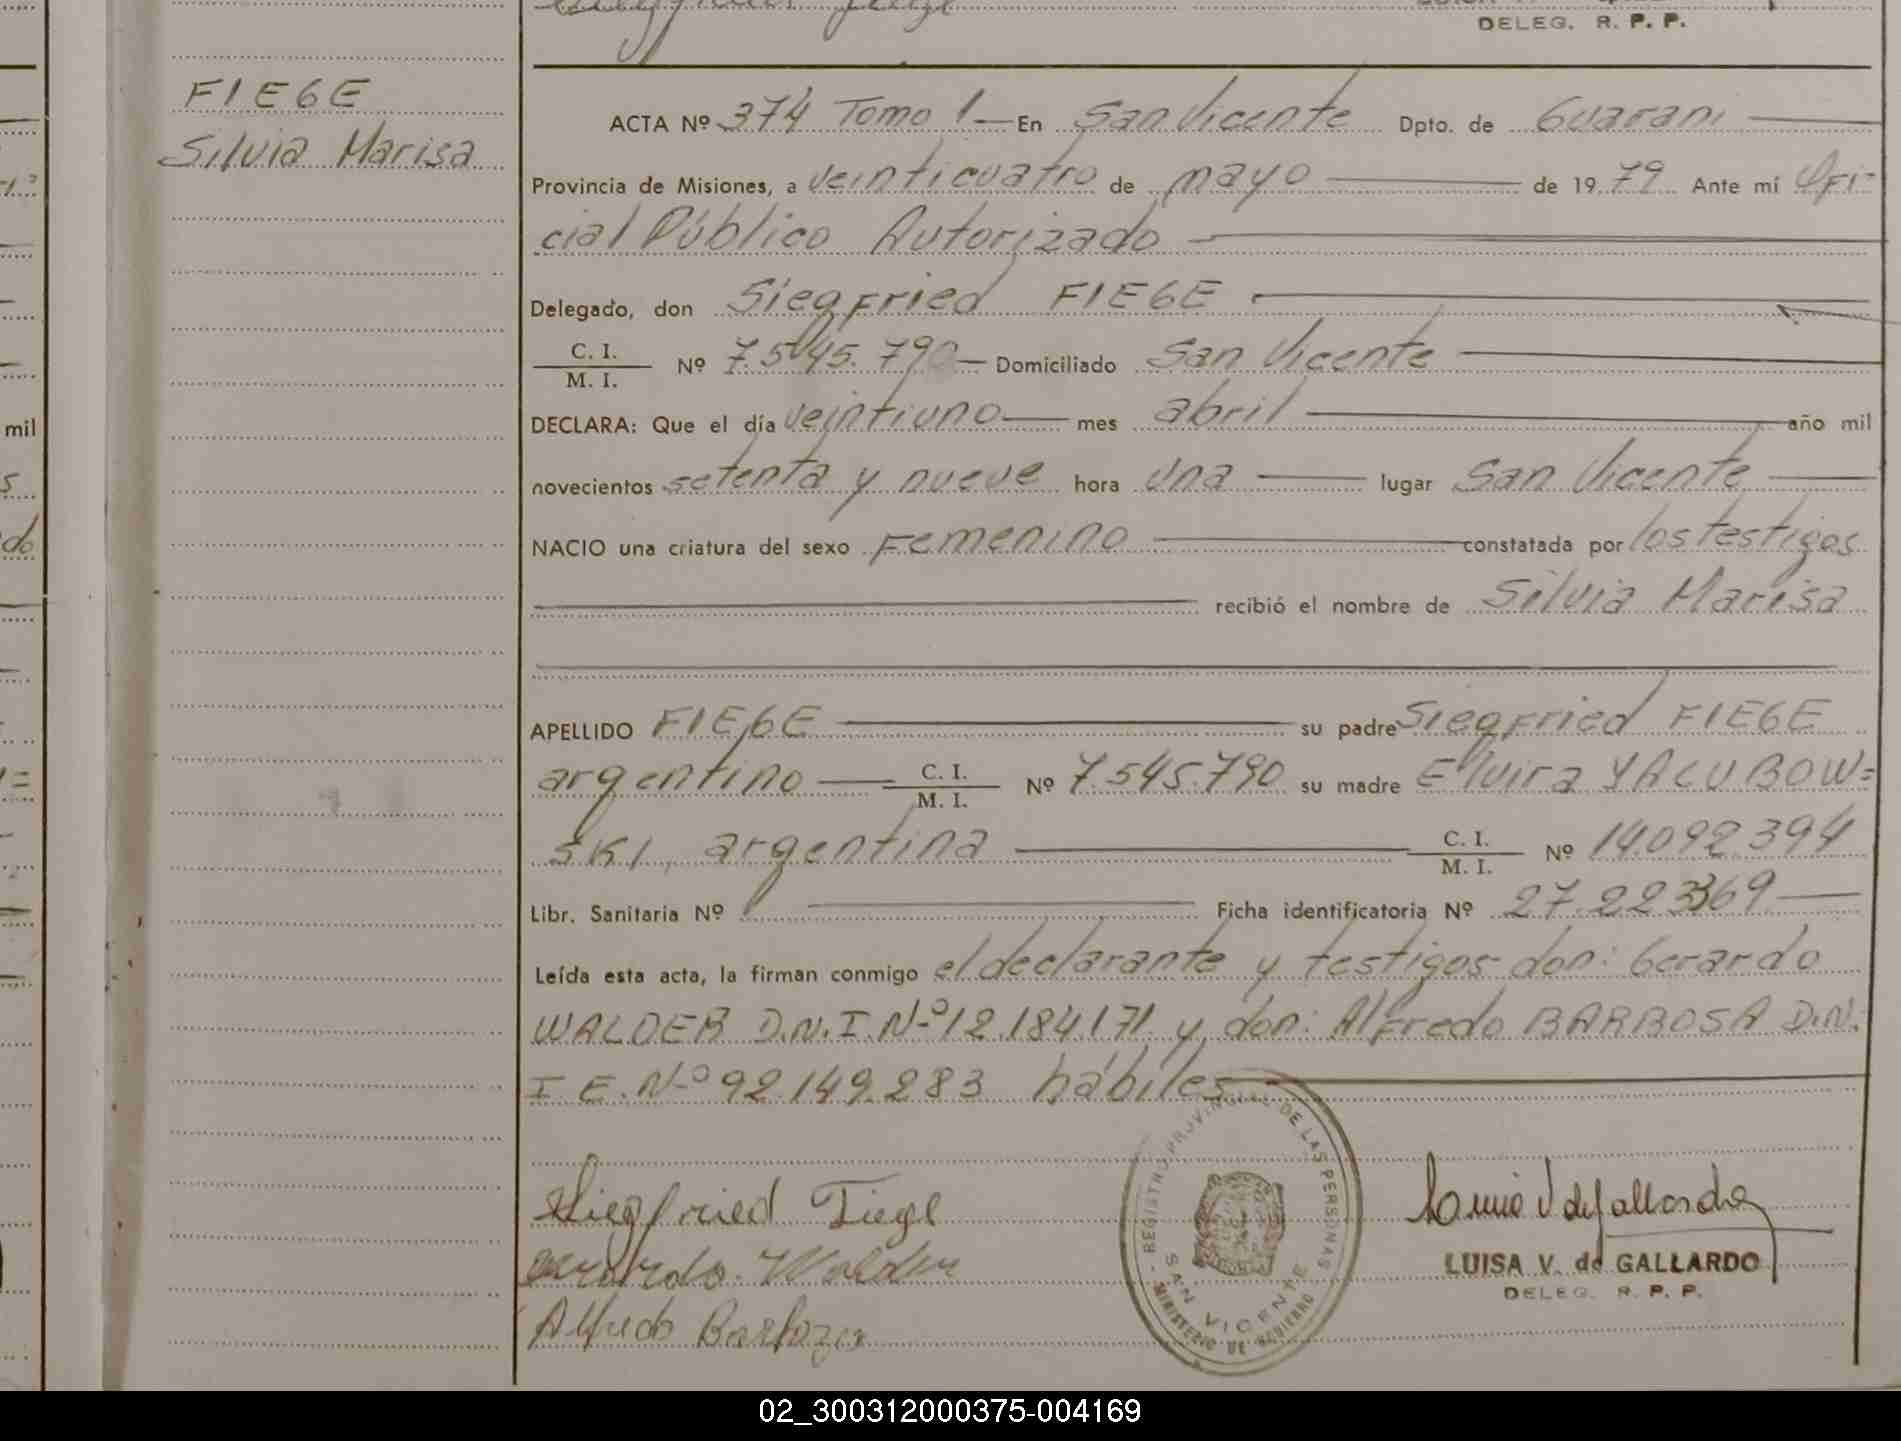 DELEG. R. P. P.
FIEGE
Silvia Marisa
mil
ACTA Nº 374 Tomo 1 — En San Vicente Dpto. de Guarani
Provincia de Misiones, a veinticuatro de mayo de 1979 Ante mí Ofi-
cial Público Autorizado
Delegado, don Siegfried FIEGE
C. I. / M. I. Nº 7.545.790 — Domiciliado San Vicente
DECLARA: Que el día veintiuno mes abril año mil
novecientos setenta y nueve hora una lugar San Vicente
NACIO una criatura del sexo Femenino constatada por los testigos
recibió el nombre de Silvia Marisa
APELLIDO FIEGE su padre Siegfried FIEGE
argentino C. I. / M. I. Nº 7.545.790 su madre Elvira YACUBOW=
SKI, argentina C. I. / M. I. Nº 14.092.394
Libr. Sanitaria Nº Ficha identificatoria Nº 27.223369
Leída esta acta, la firman conmigo el declarante y testigos don: Gerardo
WALDER D.N.I. Nº 12.184.171 y don: Alfredo BARBOSA D.N.
I E. Nº 92.149.283 hábiles
Siegfried Fiege
Gerardo Walder
Alfredo Barboza
REGISTRO PROVINCIAL DE LAS PERSONAS
SAN VICENTE
MINISTERIO DE GOBIERNO
LUISA V. de GALLARDO
DELEG. R. P. P.
02_300312000375-004169